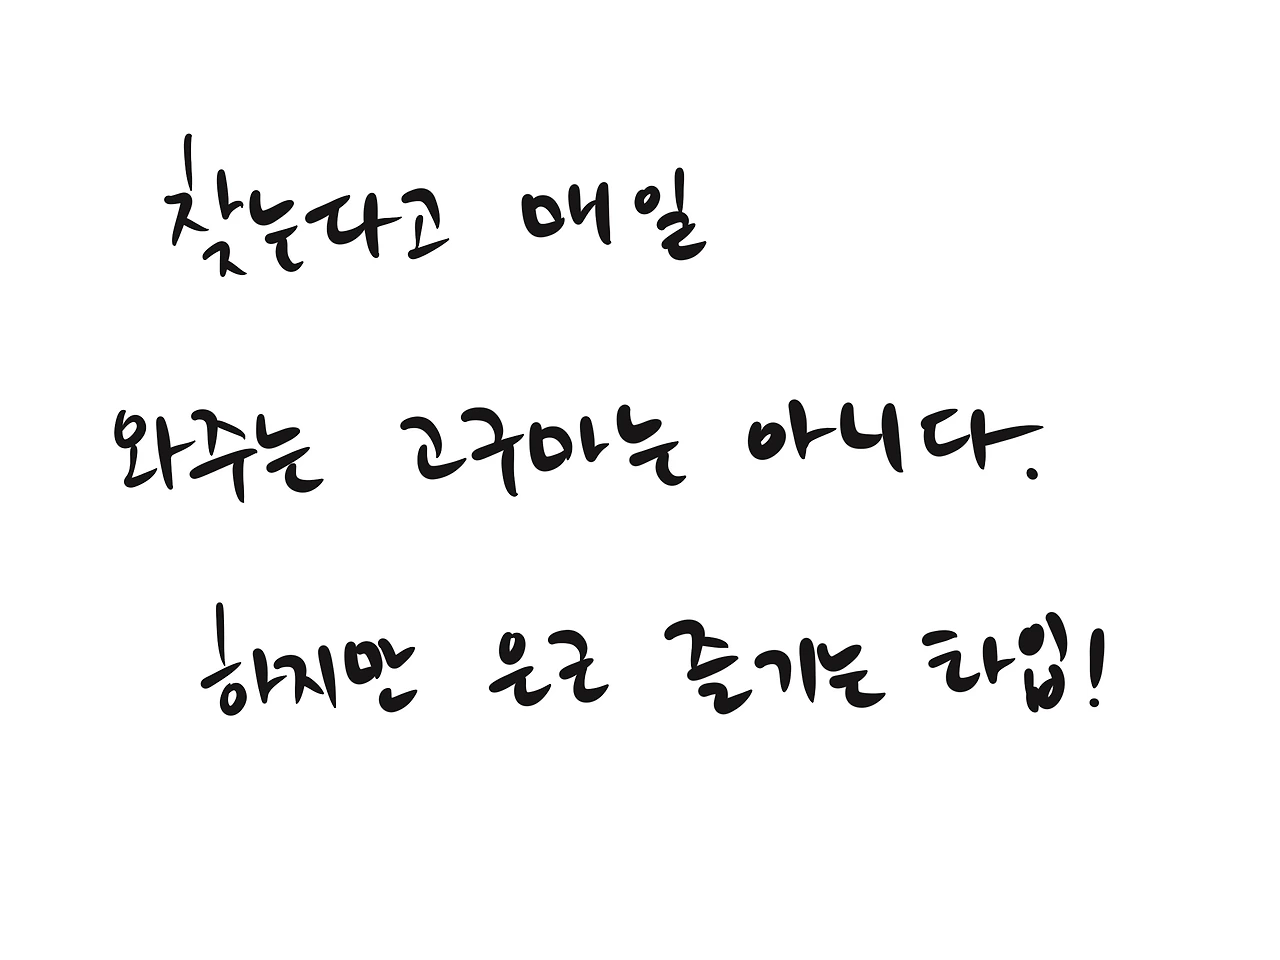 찾는다고 매일
와주는 고구마는 아니다.
하지만 은근 즐기는 타입!